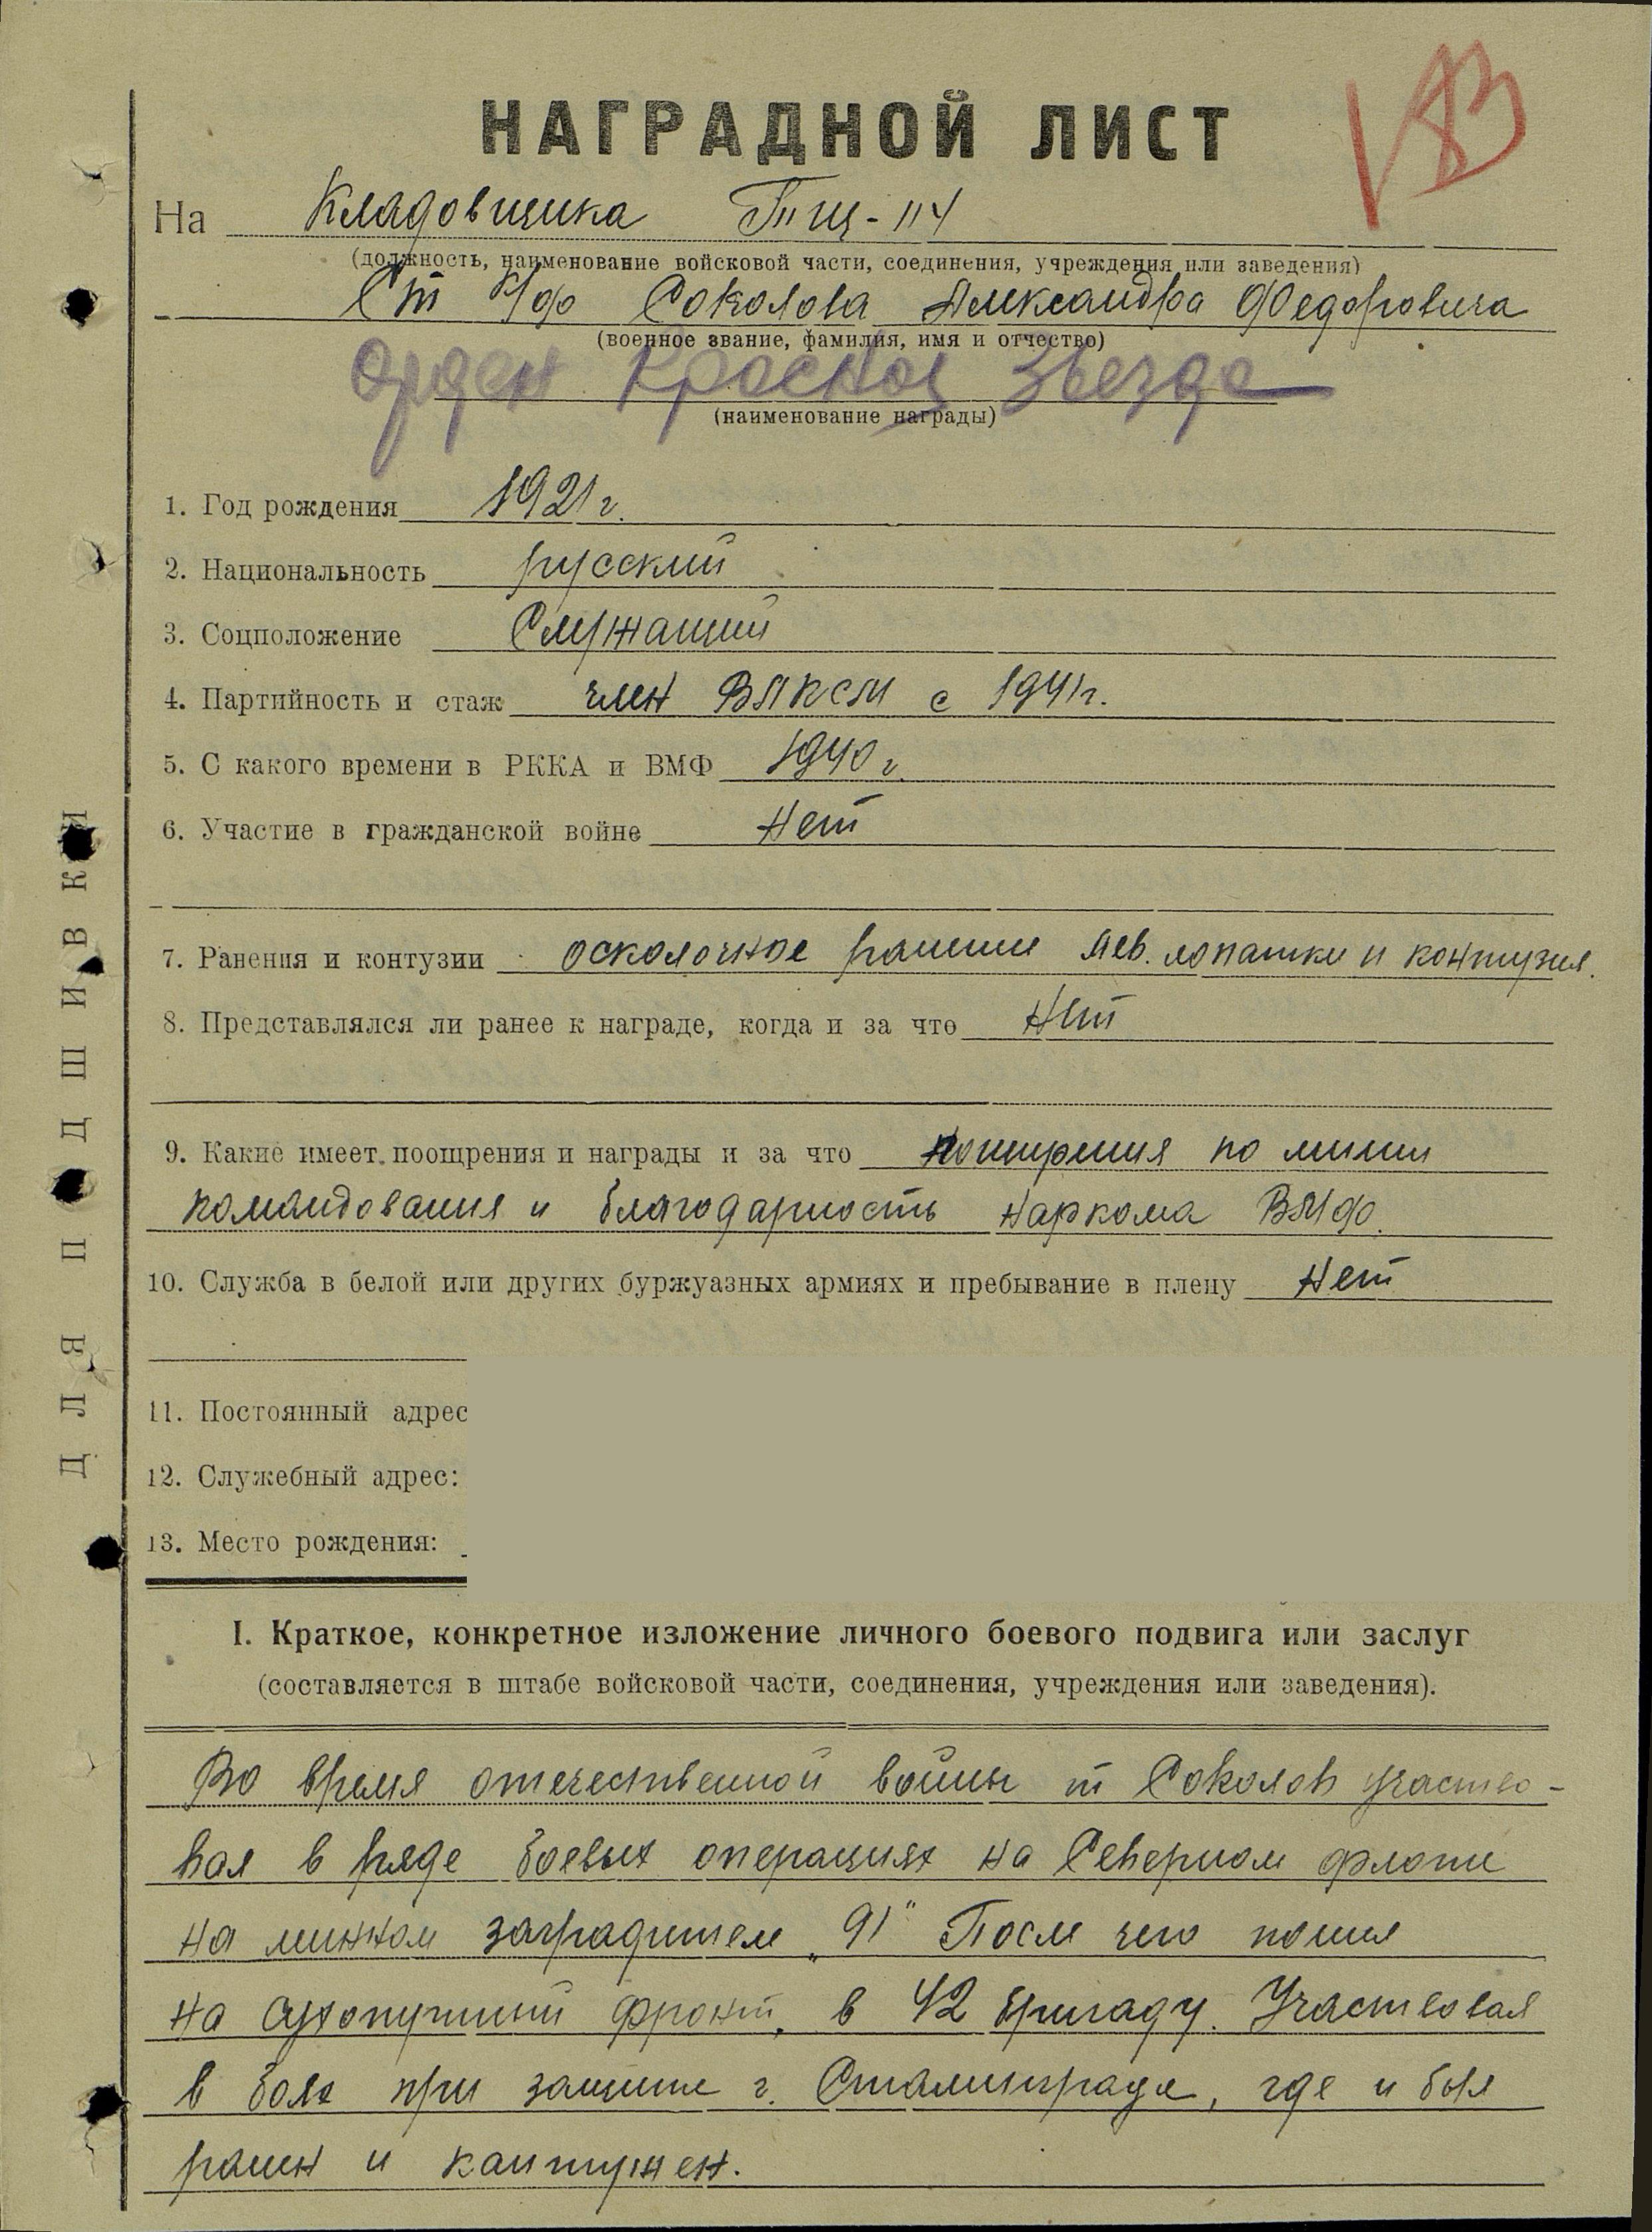 НАГРАДНОЙ ЛИСТ
На Кладовщика Тщ-114
(должность, наименование войсковой части, соединения, учреждения или заведения)
Ст к/ф Соколова Александра Федоровича
(военное звание, фамилия, имя и отчество)
Орден Красной Звезда
(наименование награды)
1. Год рождения 1921 г.
2. Национальность русский
3. Соцположение Служащий
4. Партийность и стаж член ВЛКСМ с 1941г.
5. С какого времени в РККА и ВМФ 1940 г.
6. Участие в гражданской войне Нет
7. Ранения и контузии осколочное ранение лев. лопатки и контузия.
8. Представлялся ли ранее к награде, когда и за что Нет
9. Какие имеет поощрения и награды и за что поощрения по линии
командования и благодарность Наркома ВМФ.
10. Служба в белой или других буржуазных армиях и пребывание в плену Нет
11. Постоянный адрес
12. Служебный адрес:
13. Место рождения:
ДЛЯ ПОДШИВКИ
I. Краткое, конкретное изложение личного боевого подвига или заслуг
(составляется в штабе войсковой части, соединения, учреждения или заведения).
Во время отечественной войны т Соколов участво-
вал в ряде боевых операциях на Северном флоте
на минном заградителе „91" После чего пошел
на сухопутный фронт, в 42 бригаду. Участвовал
в боях при защите г. Сталинграда, где и был
ранен и кантужен.